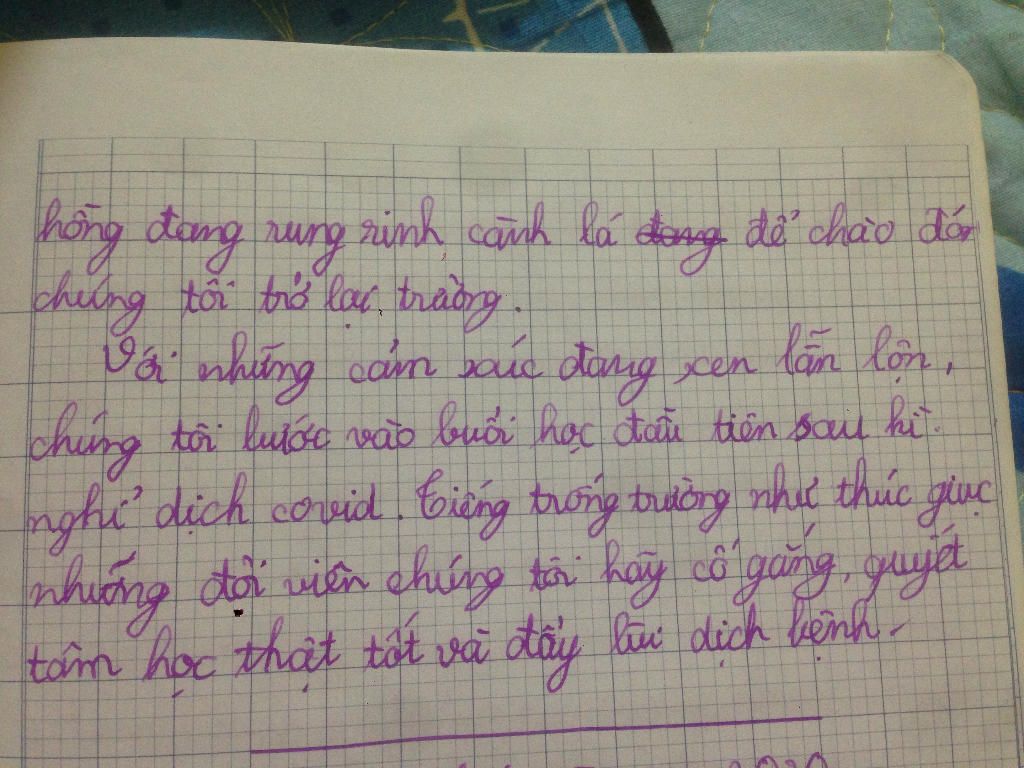 hồng đang rung rinh cành lá đang để chào đón
chúng tôi trở lại trường.
Với những cảm xúc đang xen lẫn lộn,
chúng tôi bước vào buổi học đầu tiên sau kì
nghỉ dịch covid. Tiếng trống trường như thúc giục
những đội viên chúng tôi hãy cố gắng, quyết
tâm học thật tốt và đẩy lùi dịch bệnh.